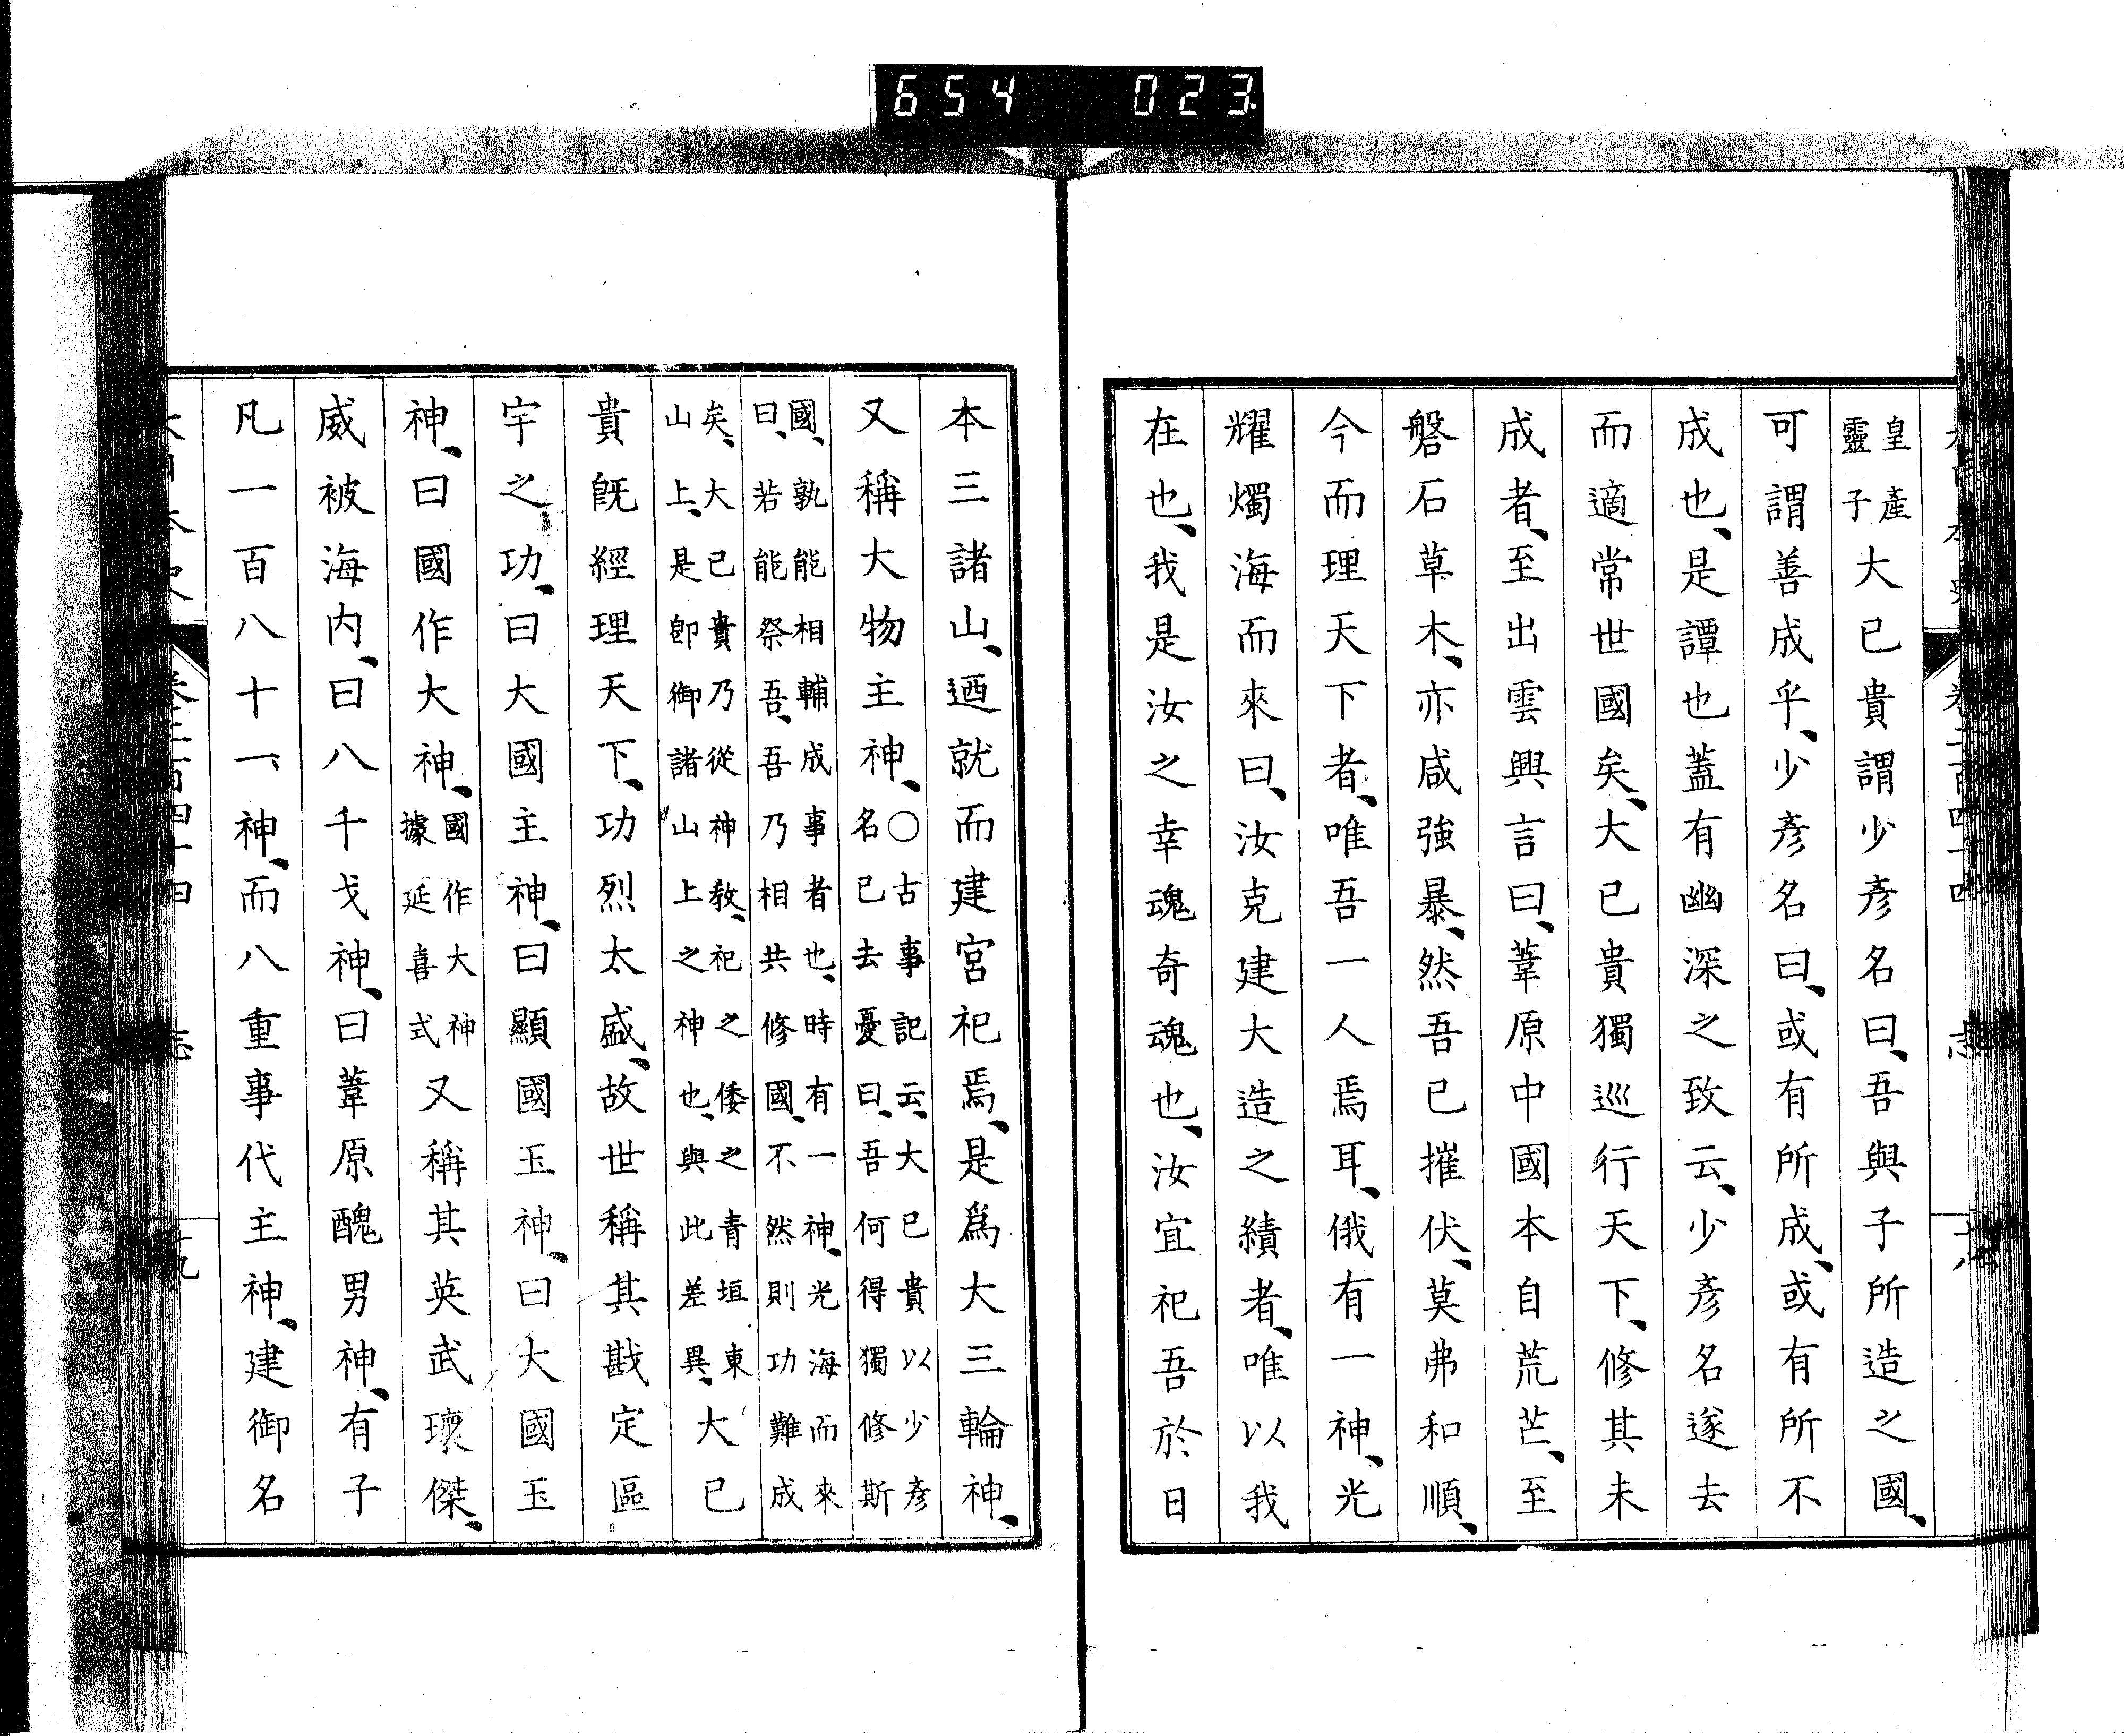 654 023
皇產靈子大已貴謂少彥名曰、吾與子所造之國、
可謂善成乎、少彥名曰、或有所成、或有所不
成也、是譚也蓋有幽深之致云、少彥名遂去
而適常世國矣、大已貴獨巡行天下、修其未
成者、至出雲興言曰、葦原中國本自荒芒、至
磐石草木、亦咸強暴、然吾已摧伏、莫弗和順、
今而理天下者、唯吾一人焉耳、俄有一神、光
耀燭海而來曰、汝克建大造之績者、唯以我
在也、我是汝之幸魂奇魂也、汝宜祀吾於日
本三諸山、迺就而建宮祀焉、是爲大三輪神、
又稱大物主神、○古事記云、大已貴以少彥名已去憂曰、吾何得獨修斯
國、孰能相輔成事者也、時有一神、光海而來曰、若能祭吾、吾乃相共修國、不然則功難成
矣、大已貴乃從神敎、祀之倭之青垣東山上、是卽御諸山上之神也、與此差異、大已
貴既經理天下、功烈太盛、故世稱其戡定區
宇之功、曰大國主神、曰顯國玉神、曰大國玉
神、曰國作大神、國作大神據延喜式又稱其英武瓌傑、
威被海內、曰八千戈神、曰葦原醜男神、有子
凡一百八十一神、而八重事代主神、建御名